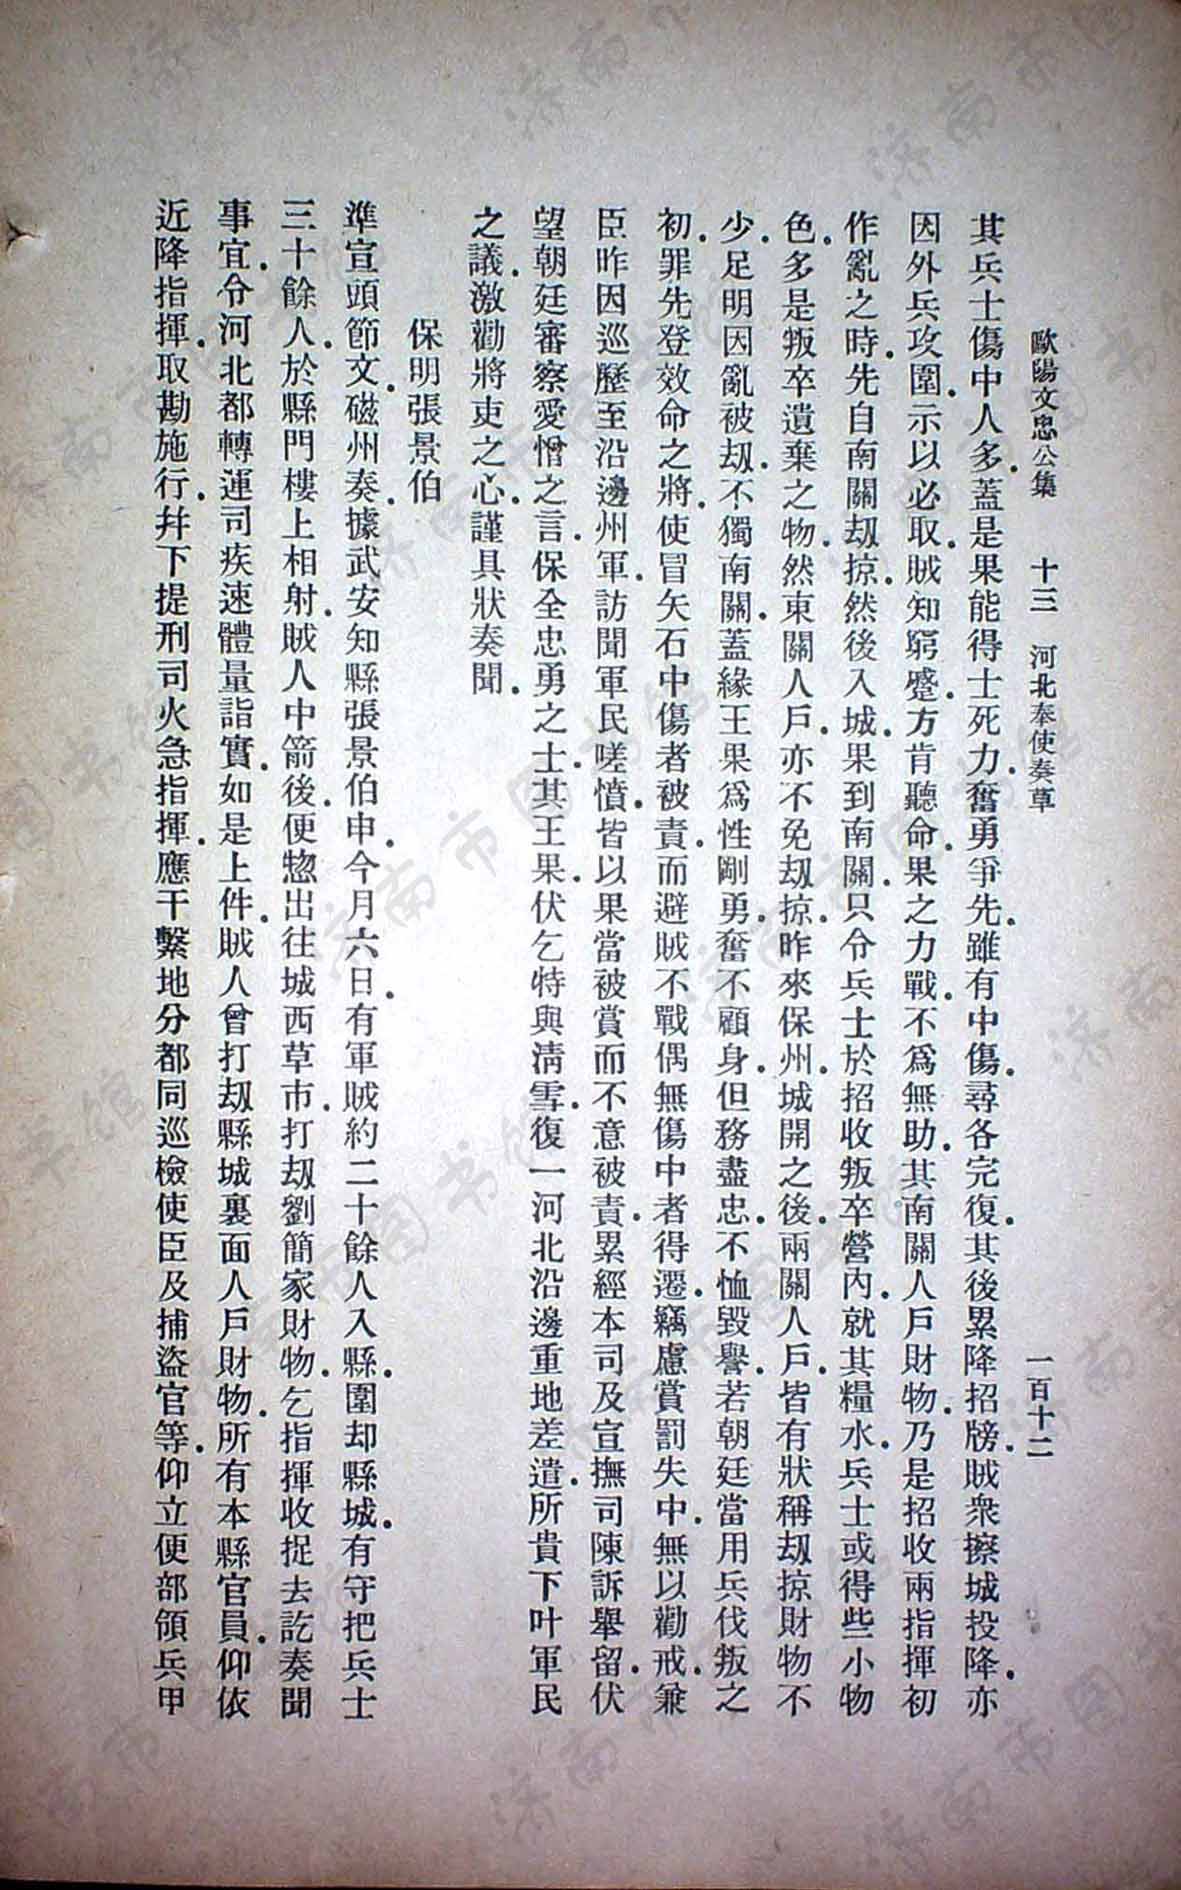 歐陽文忠公集　十三　河北奉使奏草　一百十二
其兵士傷中人多．蓋是果能得士死力．奮勇爭先．雖有中傷．尋各完復．其後累降招牓．賊衆擦城投降．亦
因外兵攻圍．示以必取．賊知窮蹙．方肯聽命．果之力戰．不爲無助．其南關人戶財物．乃是招收兩指揮初
作亂之時．先自南關刼掠．然後入城．果到南關．只令兵士於招收叛卒營內．就其糧水．兵士或得些小物
色．多是叛卒遺棄之物．然東關人戶．亦不免刼掠．昨來保州．城開之後．兩關人戶．皆有狀稱刼掠財物不
少．足明因亂被刼．不獨南關．蓋緣王果爲性剛勇．奮不顧身．但務盡忠．不恤毀譽．若朝廷當用兵伐叛之
初．罪先登效命之將．使冒矢石中傷者被責．而避賊不戰偶無傷中者得遷．竊慮賞罰失中．無以勸戒．兼
臣昨因巡歷至沿邊州軍．訪聞軍民嗟憤．皆以果當被賞而不意被責．累經本司及宣撫司陳訴舉留．伏
望朝廷審察愛憎之言．保全忠勇之士．其王果．伏乞特與淸雪．復一河北沿邊重地差遣．所貴下叶軍民
之議．激勸將吏之心．謹具狀奏聞．
保明張景伯
準宣頭節文．磁州奏．據武安知縣張景伯申．今月六日．有軍賊約二十餘人入縣．圍却縣城．有守把兵士
三十餘人．於縣門樓上相射．賊人中箭後．便惣出往城西草市．打刼劉簡家財物．乞指揮收捉去訖奏聞
事宜．令河北都轉運司疾速體量詣實．如是上件．賊人曾打刼縣城裏面人戶財物．所有本縣官員．仰依
近降指揮．取勘施行．幷下提刑司火急指揮．應干繫地分都同巡檢使臣及捕盜官等．仰立便部領兵甲
济南市图书馆